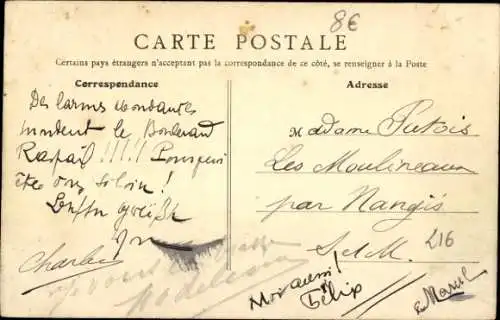 8€
CARTE POSTALE
Certains pays étrangers n'acceptant pas la correspondance de ce côté, se renseigner à la Poste
Correspondance
Des larmes abondantes
inondent le Boulevard
Raspail !!!! Pourquoi
êtes vous si loin !
Charles
Adresse
Madame Putois
Les Moulineaux
par Nangis
S. et M.
216
Moi aussi !
Félix
Marcel